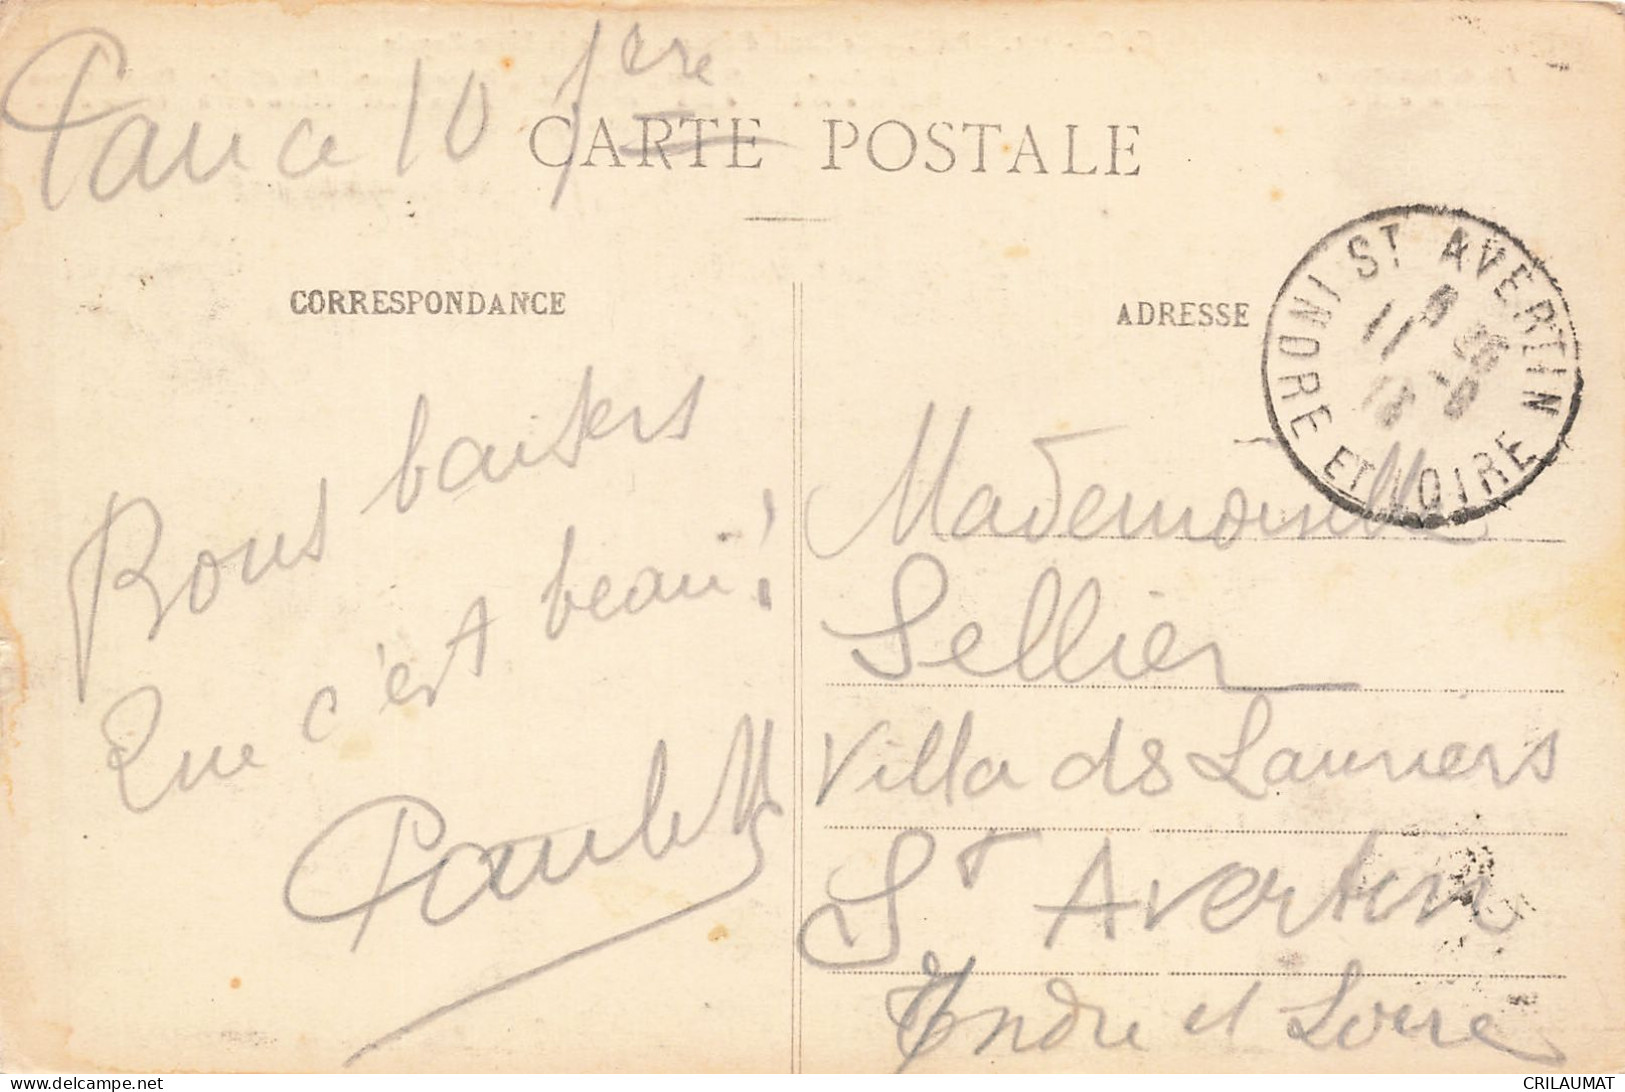 Pau ce 10 7re
CARTE POSTALE
CORRESPONDANCE
ADRESSE
ST AVERTIN
INDRE ET LOIRE
11
Bons baisers
Que c'est beau!
Mademoiselle
Sellier
Villa ds Lauriers
St Avertin
Indre et Loire
CRILAUMAT